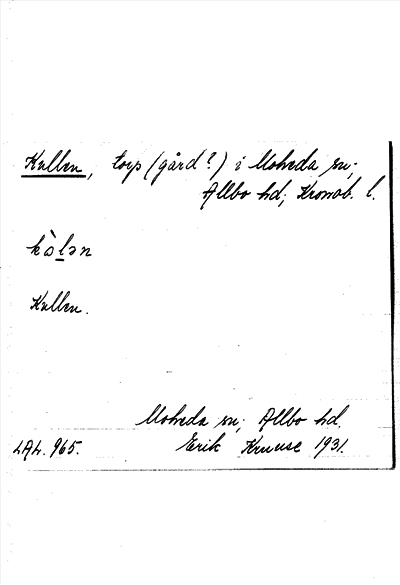 Kullen, torp (gård?) i Moheda sn;
Allbo hd; Kronob. l.
kòl̲ən
Kullen.
Moheda sn; Allbo hd.
LAL. 965. Erik Kruuse 1931.